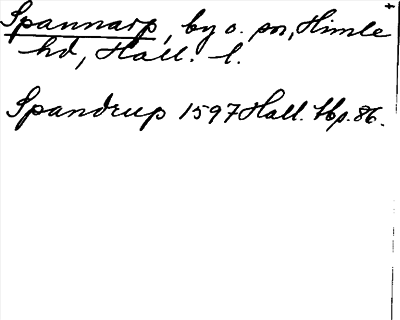 Spannarp, by o. sn, Himle
hd, Hall. l.
Spandrup 1597 Hall. tbp. 86.